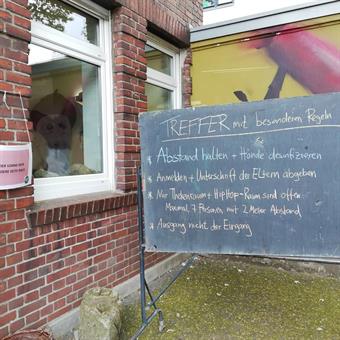 TREFFER mit besonderen Regeln
&
* Abstand halten + Hände desinfizieren
* Anmelden + Unterschrift der Eltern abgeben
* Nur Thekenraum + HipHop-Raum sind offen
Maximal 7 Personen mit 2 Meter Abstand
* Ausgang nicht der Eingang